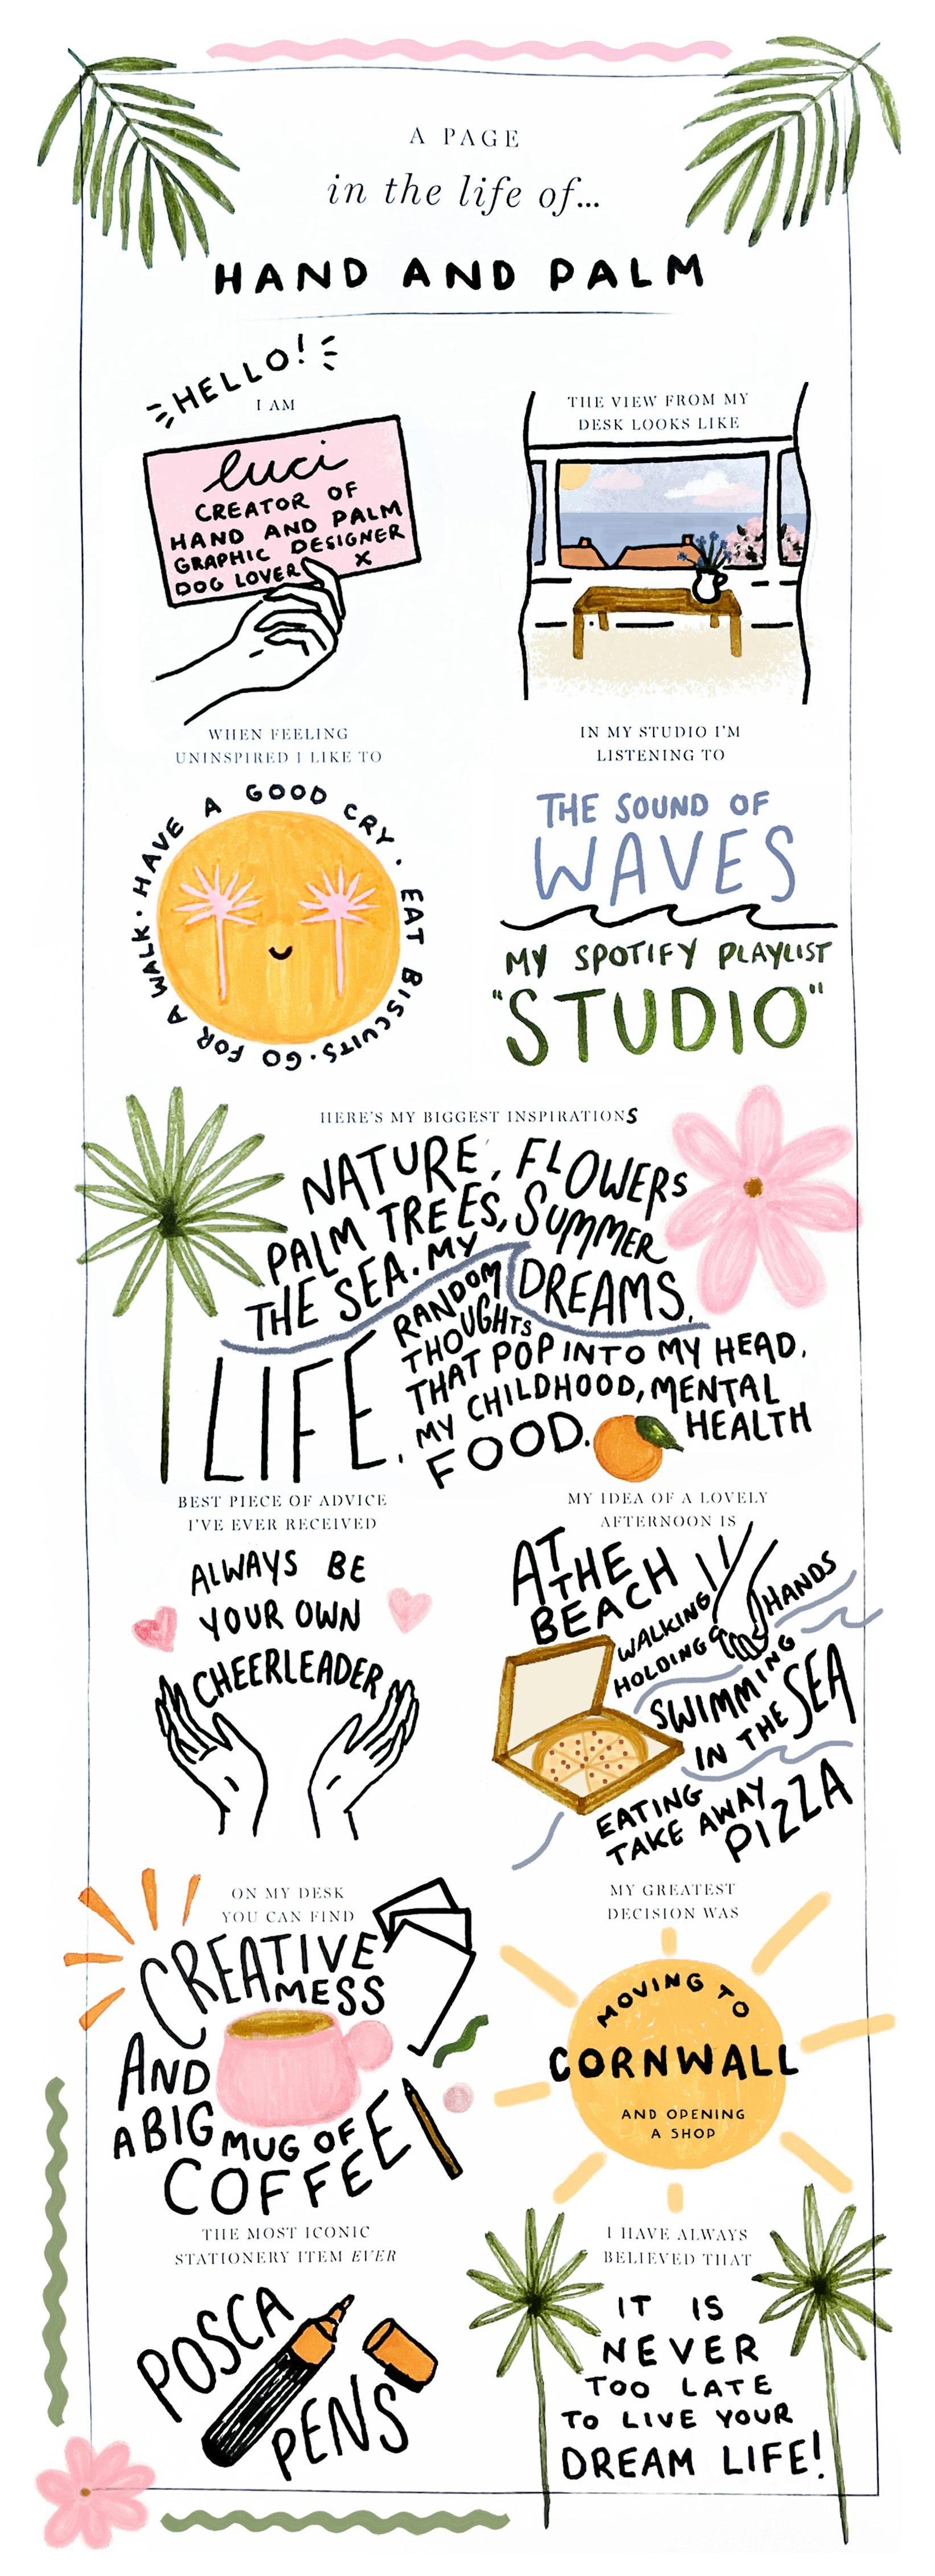 A PAGE
in the life of...
HAND AND PALM
HELLO!
I AM
luci
CREATOR OF
HAND AND PALM
GRAPHIC DESIGNER
DOG LOVER X
THE VIEW FROM MY
DESK LOOKS LIKE
WHEN FEELING
UNINSPIRED I LIKE TO
HAVE A GOOD CRY · EAT BISCUITS · GO FOR A WALK ·
IN MY STUDIO I'M
LISTENING TO
THE SOUND OF
WAVES
MY SPOTIFY PLAYLIST
"STUDIO"
HERE'S MY BIGGEST INSPIRATIONS
NATURE, FLOWERS
PALM TREES, SUMMER
THE SEA. MY
DREAMS.
LIFE.
RANDOM
THOUGHTS
THAT POP INTO MY HEAD.
MY CHILDHOOD, MENTAL
HEALTH
FOOD.
BEST PIECE OF ADVICE
I'VE EVER RECEIVED
ALWAYS BE
YOUR OWN
CHEERLEADER
MY IDEA OF A LOVELY
AFTERNOON IS
AT THE
BEACH
WALKING
HOLDING HANDS
SWIMMING
IN THE SEA
EATING
TAKE AWAY
PIZZA
ON MY DESK
YOU CAN FIND
CREATIVE
MESS
AND
A BIG
MUG OF
COFFEE
MY GREATEST
DECISION WAS
MOVING TO
CORNWALL
AND OPENING
A SHOP
THE MOST ICONIC
STATIONERY ITEM EVER
POSCA
PENS
I HAVE ALWAYS
BELIEVED THAT
IT IS
NEVER
TOO LATE
TO LIVE YOUR
DREAM LIFE!